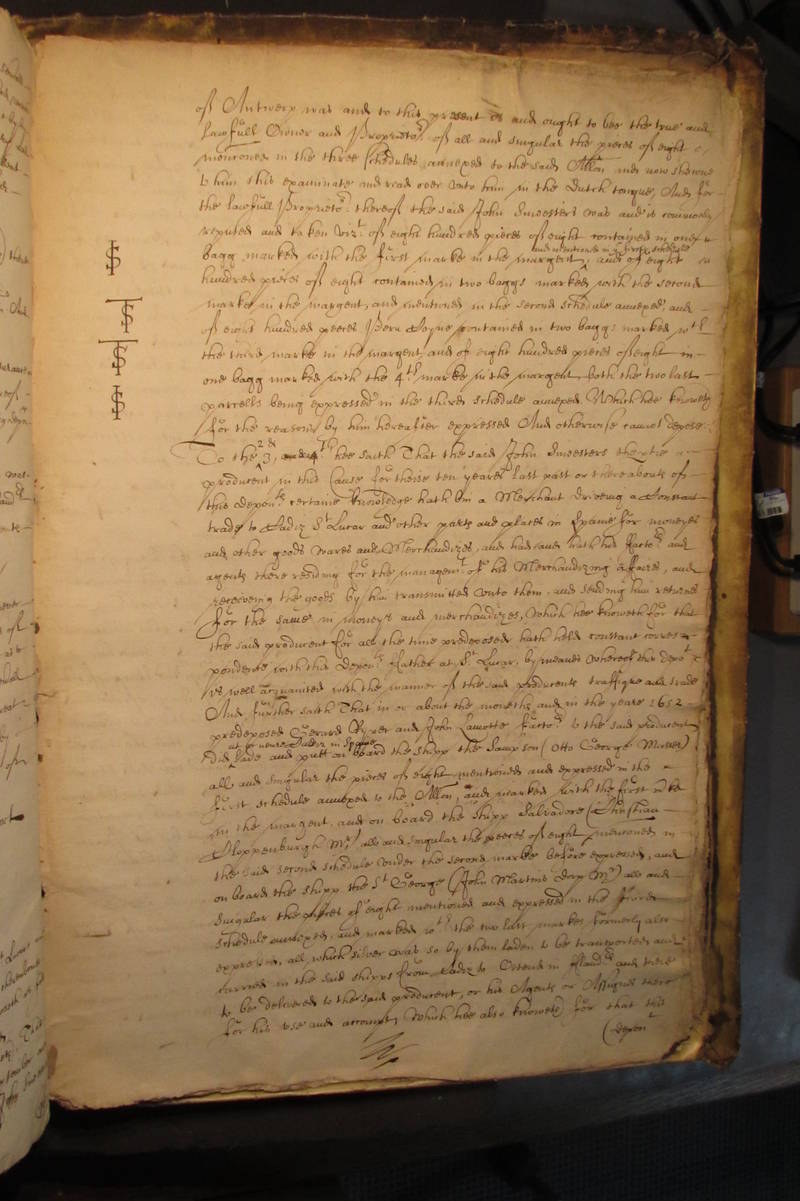 of Antwerp was and to this present is and ought to bee the true and
lawfull Owner and Proprietor of all and singular the pieces of eight
mentioned in the three schedules annexed to the said Allon and now showne
to him this examinate and read over unto him in the Dutch tongue, And for
the lawfull Proprietor thereof the said John Dmeesters was and is commonly
reputed and taken vizt. of eight hundred pieces of eight contained in one
bagg marked with the first marke in the margent, and mentioned in ye first schedule and of eight
hundred pieces of eight contained in two baggs marked with the second
marke in the margent, and mentioned in the second schedule annexed, and
of eight hundred peeces Peru Coyne contained in two baggs marked wth
the third marke in the margent, and of eight hundred pieces of eight in
one bagg marked with the 4th marke in the margent, both the two last
parcells being expressed in the third schedule annexed, Which hee knoweth
for the reasons by him hereafter expressed And otherwise cannot depose.
To the 2d 3, hee saith That the said John Dmeesters the
producent in this Cause for theise ten yeares last past or thereabouts of
this deponts certaine knowledge hath bin a Merchant driveing a Constant
trade to Cadiz St Lucar and other parts and places in Spaine for moneyes
and other goods wares and Merchandizes, and had and hath his factors and
agents there resideing for the managemt of his Merchandizing affaires, and
receiveing the goods by him transmitted unto them, and sending him returnes
for the same in moneys and merchandizes, Which hee knoweth for that
the said producent for all the time predeposed hath held constant corres-
pondence with this deponts father at St Lucar, by meanes whereof this depont
is well acquainted with the manner of the said producents traffique and trade
And further saith That in or about the moneths and in the yeare 1652
predeposed Gerard and John Lamotte factors to the said producent
did lade and putt on board the shipp the Sampson (Otto George Master)
at or neare Cadiz in Spaine
all and singular the pieces of eight mentioned and expressed in the
first schedule annexed to the Allon, and marked with the first mke
in the margent, and on board the shipp Salvadore (Christian
Cloppenburgh Mr) all and singular the peeces of eight mentioned in
the said second schedule under the second marke before expressed, and
on board the shipp the St George (John Martins Dorp Mr) all and
singular the pieces of eight mentioned and expressed in the third
schedule annexed, and marked wth the two last markes formerly also
expressed, all which silver was so by them laden to be transported and
carried in the said shipps from Cadiz to Ostend in flanders and there
to be delivered to the said producent, or his Agents or Assignes there
for his use and accompt, Which hee also knoweth for that this
depont